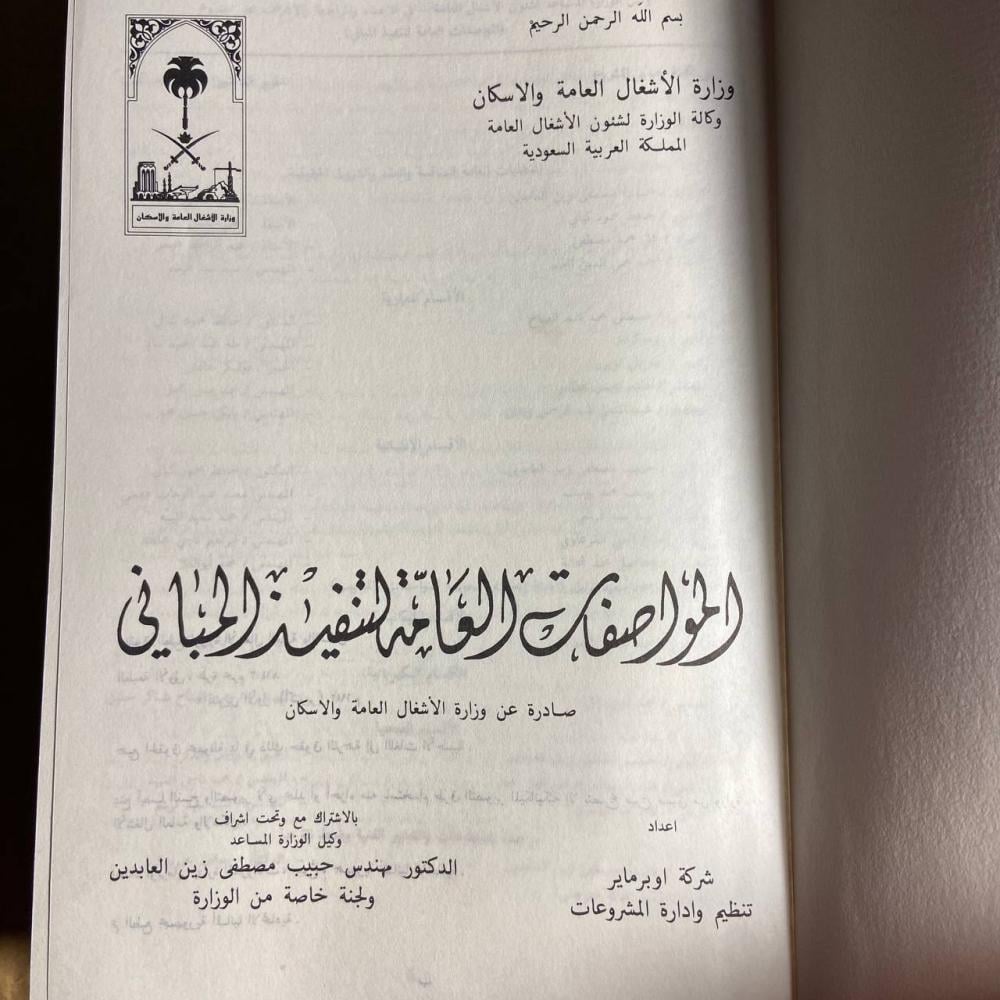 بسم الله الرحمن الرحيم
وزارة الأشغال العامة والاسكان
وكالة الوزارة لشئون الأشغال العامة
المملكة العربية السعودية
وزارة الاشغال العامة والاسكان
المواصفات العامة لتنفيذ المباني
صادرة عن وزارة الأشغال العامة والاسكان
اعداد
شركة اوبرماير
تنظيم وادارة المشروعات
بالاشتراك مع وتحت اشراف
وكيل الوزارة المساعد
الدكتور مهندس حبيب مصطفى زين العابدين
ولجنة خاصة من الوزارة